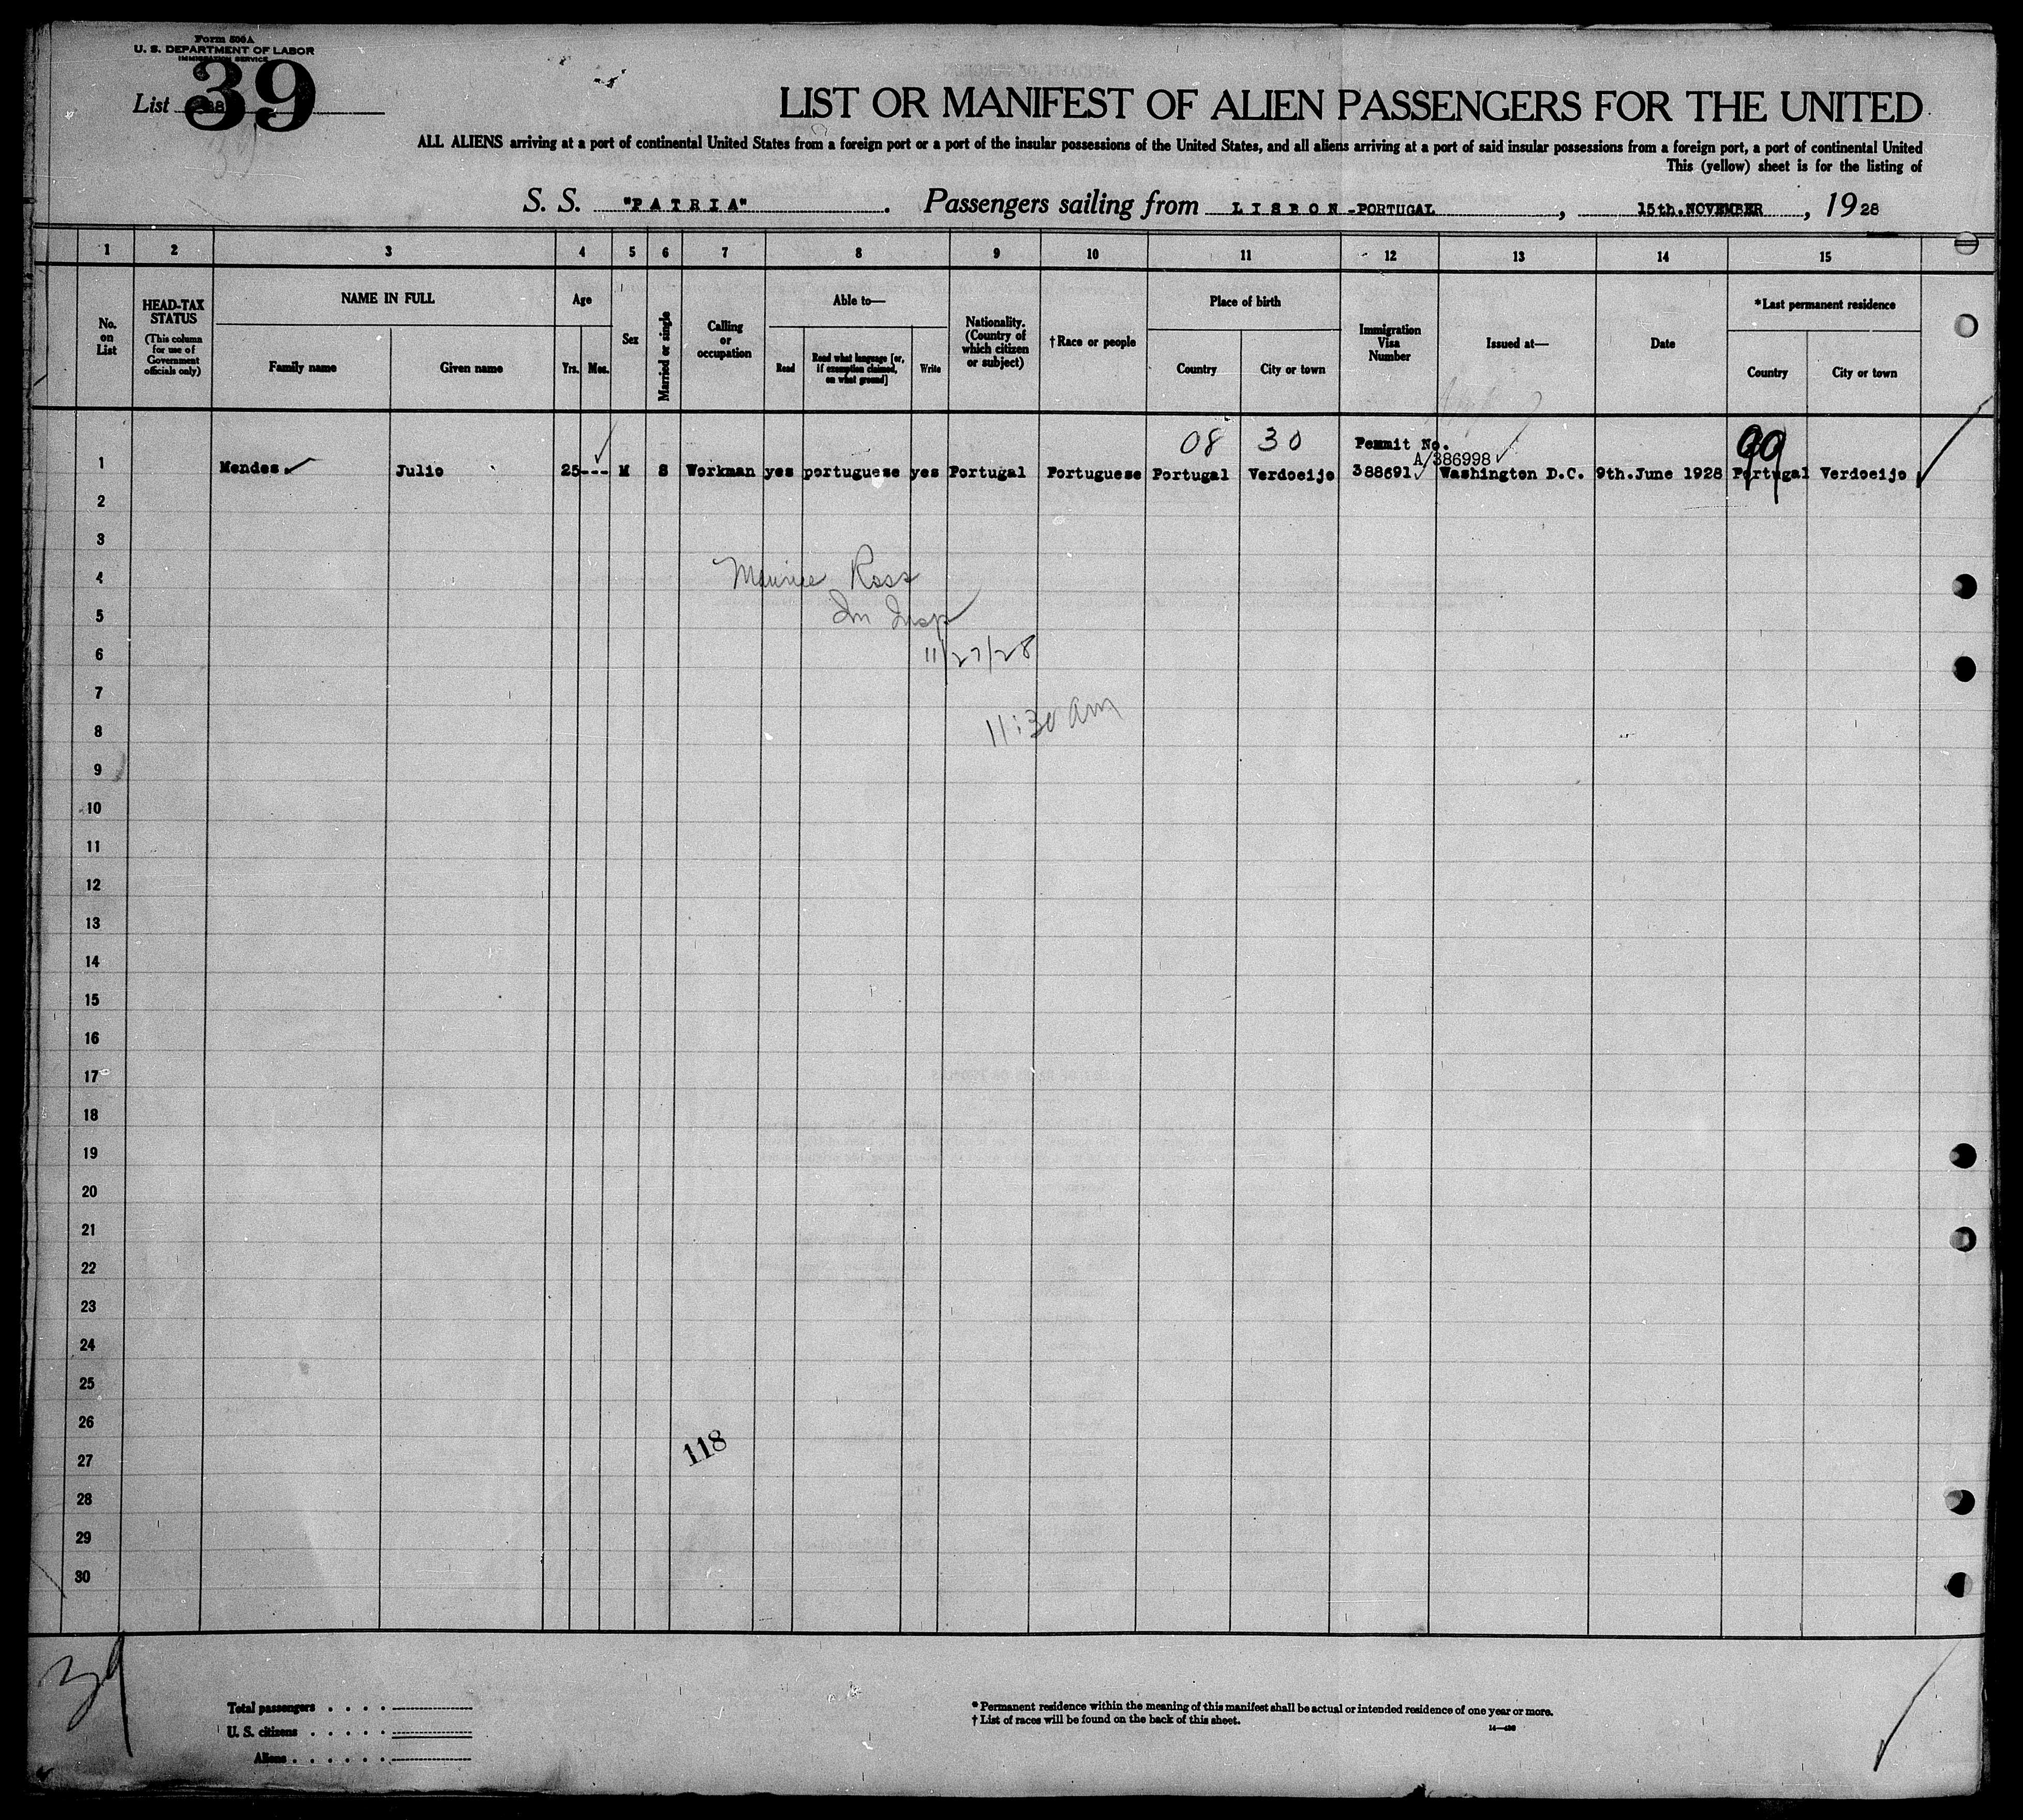 Form 500A
U. S. DEPARTMENT OF LABOR
IMMIGRATION SERVICE
List 39
LIST OR MANIFEST OF ALIEN PASSENGERS FOR THE UNITED
ALL ALIENS arriving at a port of continental United States from a foreign port or a port of the insular possessions of the United States, and all aliens arriving at a port of said insular possessions from a foreign port, a port of continental United
This (yellow) sheet is for the listing of
S. S. "PATRIA". Passengers sailing from LISBON-PORTUGAL, 15th.NOVEMBER, 1928
1 2 3 4 5 6 7 8 9 10 11 12 13 14 15
No. on List
HEAD-TAX STATUS
(This column for use of Government officials only)
NAME IN FULL
Family name
Given name
Age
Yrs. Mos.
Sex
Married or single
Calling or occupation
Able to—
Read
Read what language [or, if exemption claimed, on what ground]
Write
Nationality. (Country of which citizen or subject)
†Race or people
Place of birth
Country
City or town
Immigration Visa Number
Issued at—
Date
*Last permanent residence
Country
City or town
08 30 Permit No. 99
A/386998
1 Mendes Julio 25--- M S Workman yes portuguese yes Portugal Portuguese Portugal Verdoeijo 388691 Washington D.C. 9th.June 1928 Portugal Verdoeijo
2
3
4
Maurice Ross
5
Im Insp
6
11/27/28
7
8
11:30 am
9
10
11
12
13
14
15
16
17
18
19
20
21
22
23
24
25
26
118
27
28
29
30
39
Total passengers
U. S. citizens
Aliens
* Permanent residence within the meaning of this manifest shall be actual or intended residence of one year or more.
† List of races will be found on the back of this sheet.
14—430